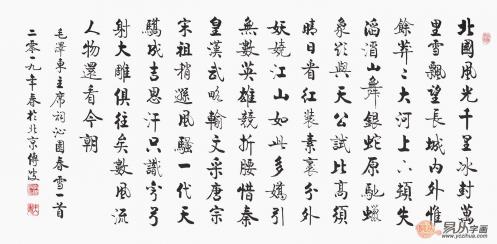 北國風光千里冰封萬
里雪飄望長城內外惟
餘莽〻大河上下頓失
滔滔山舞銀蛇原馳蠟
象欲與天公試比高須
晴日看紅裝素裹分外
妖嬈江山如此多嬌引
無數英雄競折腰惜秦
皇漢武略輸文采唐宗
宋祖稍遜風騷一代天
驕成吉思汗只識彎弓
射大雕俱往矣數風流
人物還看今朝
毛澤東主席詞沁園春雪一首
二零一九年春於北京傅波
易从字画
www.yczihua.com